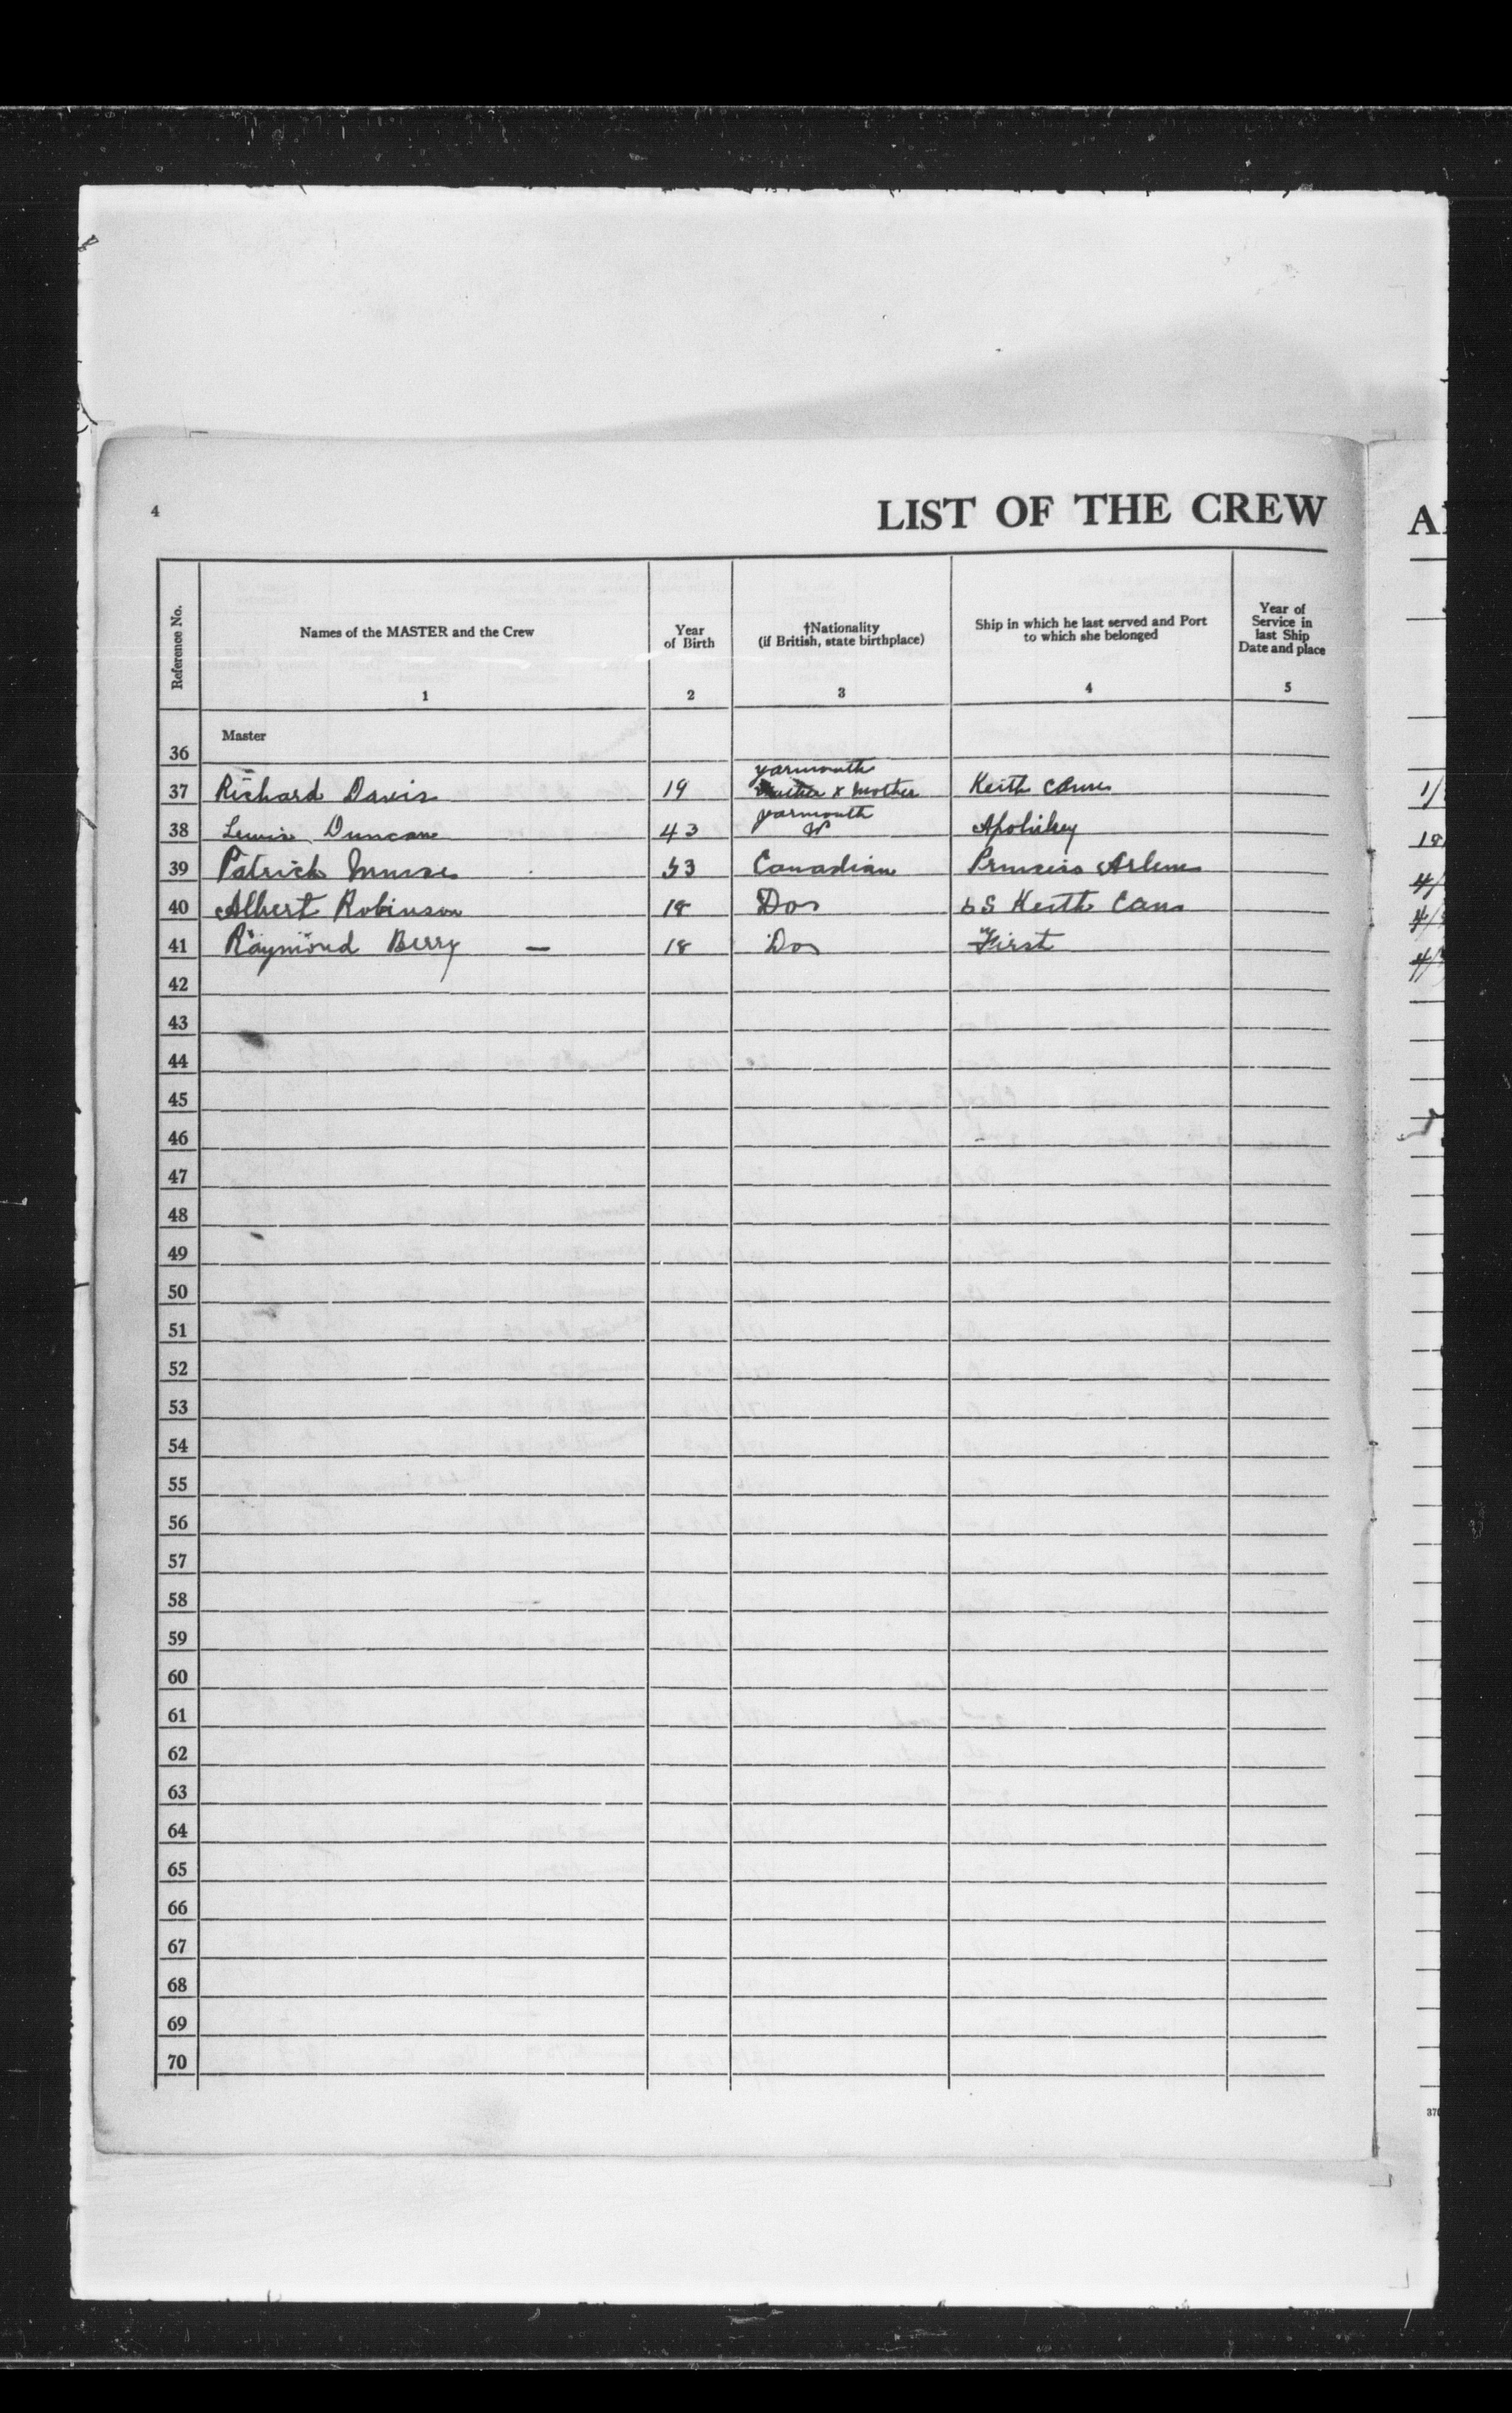 4
LIST OF THE CREW
A
Reference No.
Names of the MASTER and the Crew
Year of Birth
†Nationality (if British, state birthplace)
Ship in which he last served and Port to which she belonged
Year of Service in last Ship Date and place
1 2 3 4 5
36 Master
yarmouth
37 Richard Davis 19 x mother Keith
yarmouth
38 Lewis Duncan 43
39 Patrick 53 Canadian Princess Arlene
40 Albert Robinson 18 Do SS Keith Cann
41 Raymond Berry — 18 Do First
42
43
44
45
46
47
48
49
50
51
52
53
54
55
56
57
58
59
60
61
62
63
64
65
66
67
68
69
70
1/
18
4/
4/
4/
370